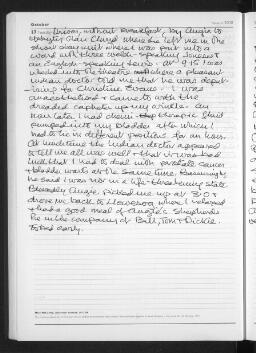 October
Driven, without breakfast, by Angie to
Ysbyty Glan Clwyd where she left me in the
short stay unit where I was put into a
ward with three Welsh-speaking
an English-speaking At 9.15 I was
wheeled into the theatre where a pleasant
Indian doctor told me that he was
for Christine Evans. I was
anaesthetised & came to with the
dreaded catheter up my winkle. An
hour later I had chemotherapeutic fluid
pumped into my bladder after which I
had to lie in different positions for an hour.
At lunchtime the Indian doctor appeared
to tell me all was well & that it was bad
luck that I had to deal with prostate cancer
& bladder warts at the same time. Reassuringly
he said I was not in a life-threatening state.
Blessedly Angie picked me up at 3.0 &
drove me back to where I relaxed
& had a good meal of Angie's Shepherds
Pie in the company of Bill, Tom & Dickie.
To bed early.